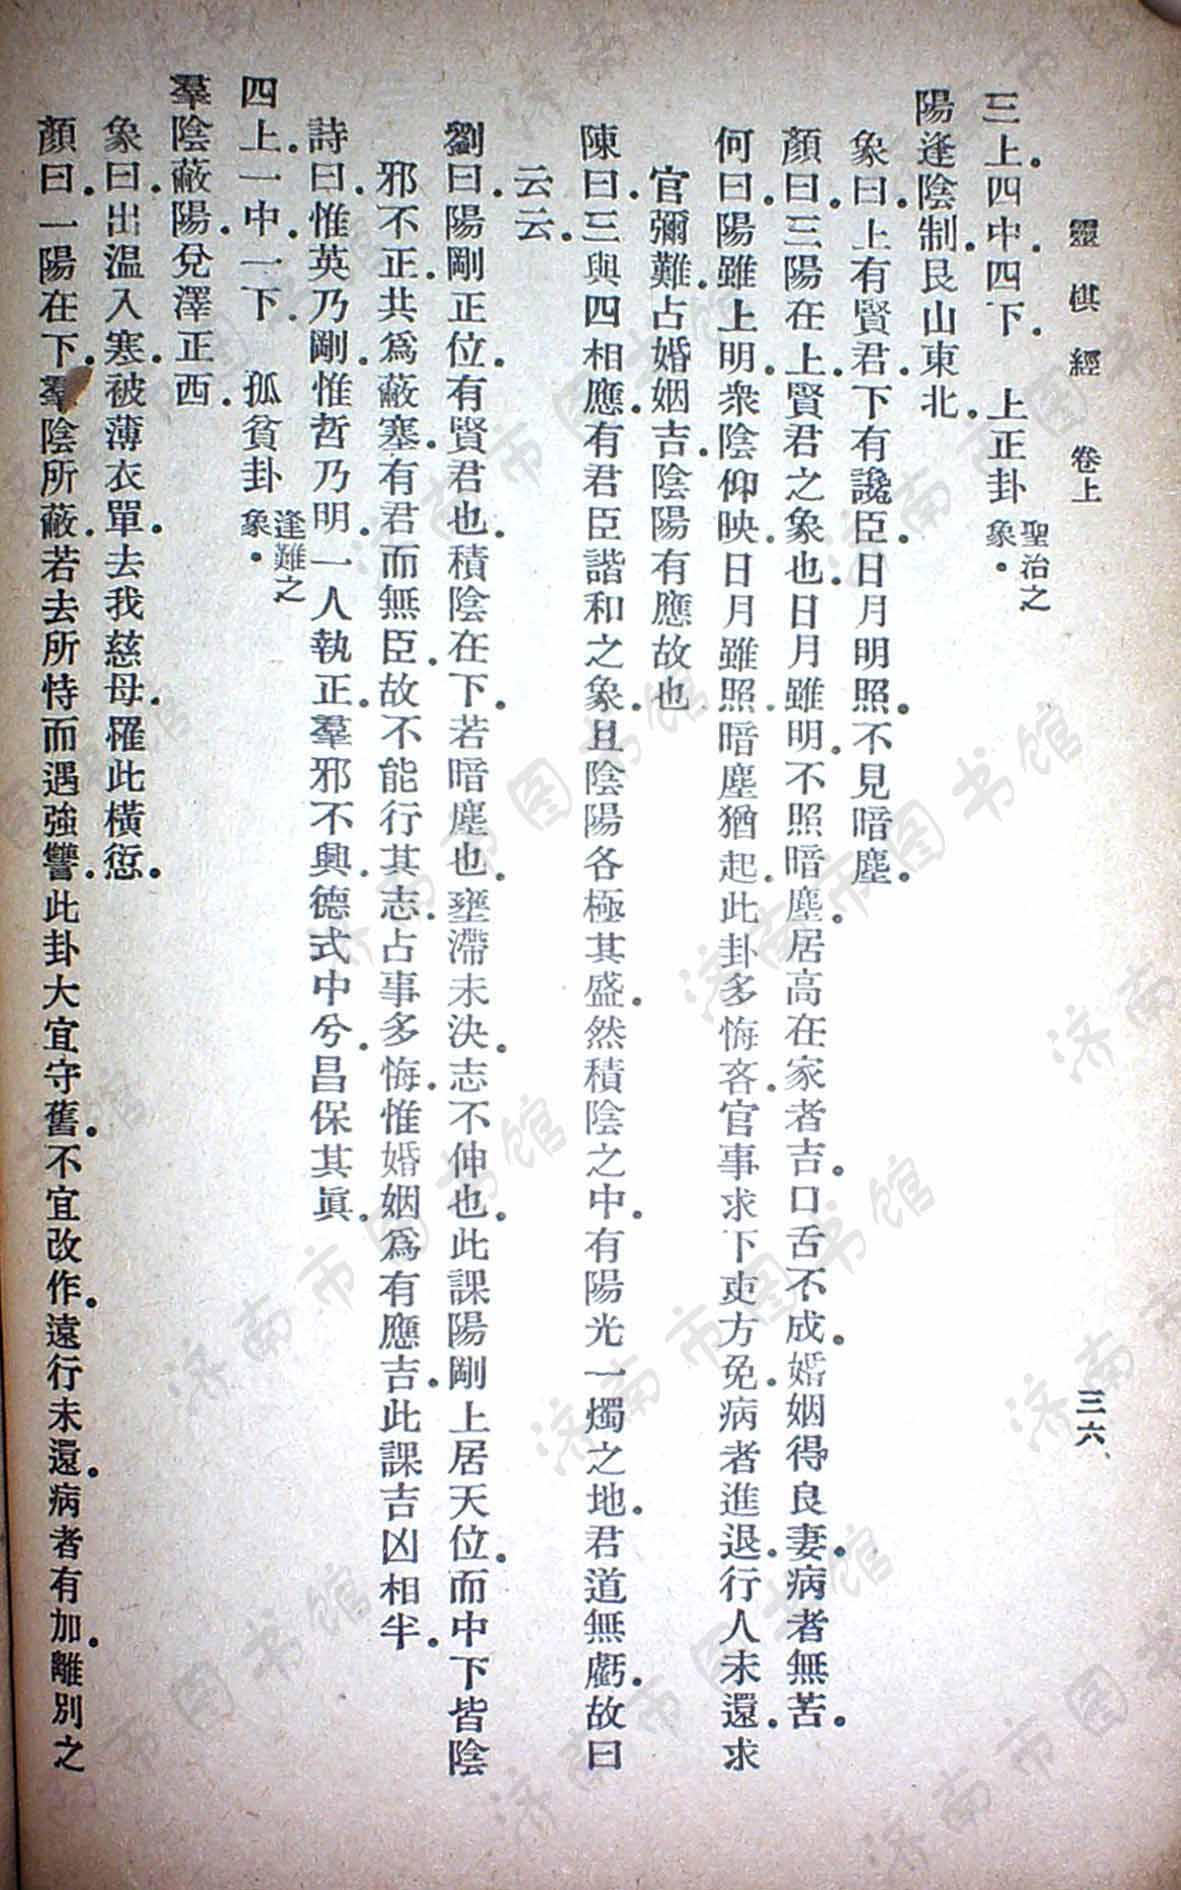 靈棋經　卷上　三六
三上。四中。四下。　上正卦　聖治之象。
陽逢陰制。艮山東北。
象曰。上有賢君。下有讒臣。日月明照。不見暗塵。
顏曰。三陽在上。賢君之象也。日月雖明。不照暗塵。居高在家者吉。口舌不成。婚姻得良妻。病者無苦。
何曰。陽雖上明。衆陰仰映。日月雖照。暗塵猶起。此卦多悔吝。官事求下吏方免。病者進退。行人未還。求
官彌難。占婚姻吉。陰陽有應故也。
陳曰。三與四相應。有君臣諧和之象。且陰陽各極其盛。然積陰之中。有陽光一燭之地。君道無虧。故曰
云云。
劉曰。陽剛正位。有賢君也。積陰在下。若暗塵也。壅滯未決。志不伸也。此課陽剛上居天位。而中下皆陰
邪不正。共爲蔽塞。有君而無臣。故不能行其志。占事多悔。惟婚姻爲有應吉。此課吉凶相半。
詩曰。惟英乃剛。惟哲乃明。一人執正。羣邪不興。德式中兮。昌保其眞。
四上。一中。一下。　孤貧卦　逢難之象。
羣陰蔽陽。兌澤正西。
象曰。出溫入寒。被薄衣單。去我慈母。罹此橫愆。
顏曰。一陽在下。羣陰所蔽。若去所恃而遇強讐。此卦大宜守舊。不宜改作。遠行未還。病者有加。離別之
济南市图书馆